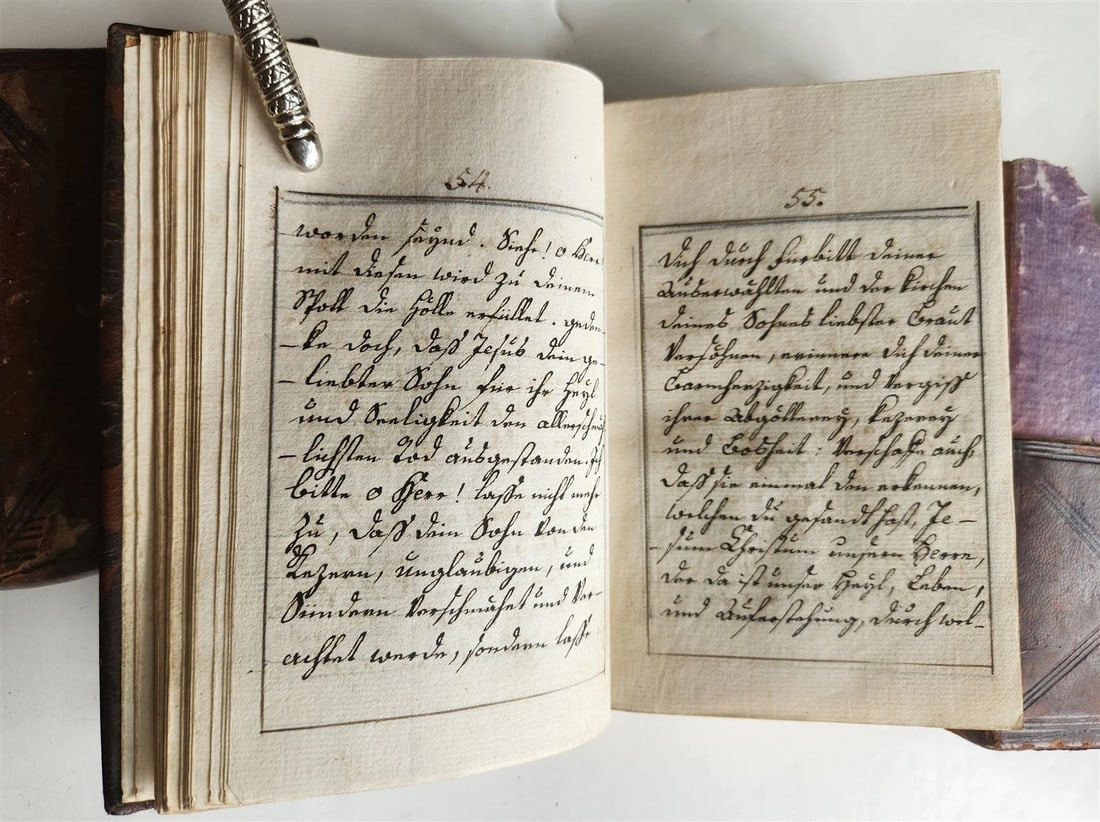 54.
worden seynd. Siehe! o Herr
mit diesen wird zu deinem
Spott die Hölle erfüllet. geden-
-ke doch, daß Jesus dein ge-
-liebter Sohn für ihr Heyl
und Seeligkeit den allerschmäh
-lichsten Tod ausgestanden. Ich
bitte o Herr! lasse nicht mehr
zu, daß dein Sohn von den
Kezern, unglaubigen, und
Sündern verschmähet und ver-
achtet werde, sondern lasse
55.
dich durch fürbitt deiner
Auserwählten und der kirchen
deines Sohnes liebster Braut
versöhnen, erinnere dich deiner
Barmherzigkeit, und vergiß
ihrer Abgötterey, kezerey
und Bosheit: verschaffe auch,
daß sie einmal den erkennen,
welchen du gesandt hast, Je-
-sum Christum unsern Herrn,
der da ist unser Heyl, Leben,
und Auferstehung, durch wel-